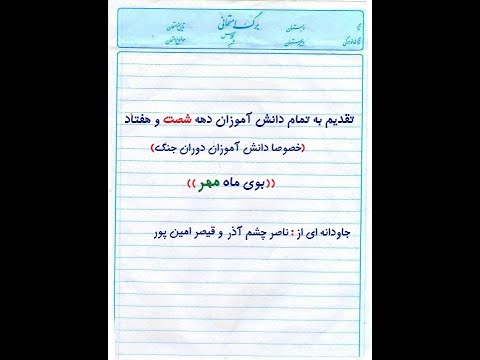 برگ امتحانی
تقدیم به تمام دانش آموزان دهه شصت و هفتاد
(خصوصا دانش آموزان دوران جنگ)
((بوی ماه مهر))
جاودانه ای از : ناصر چشم آذر و قیصر امین پور